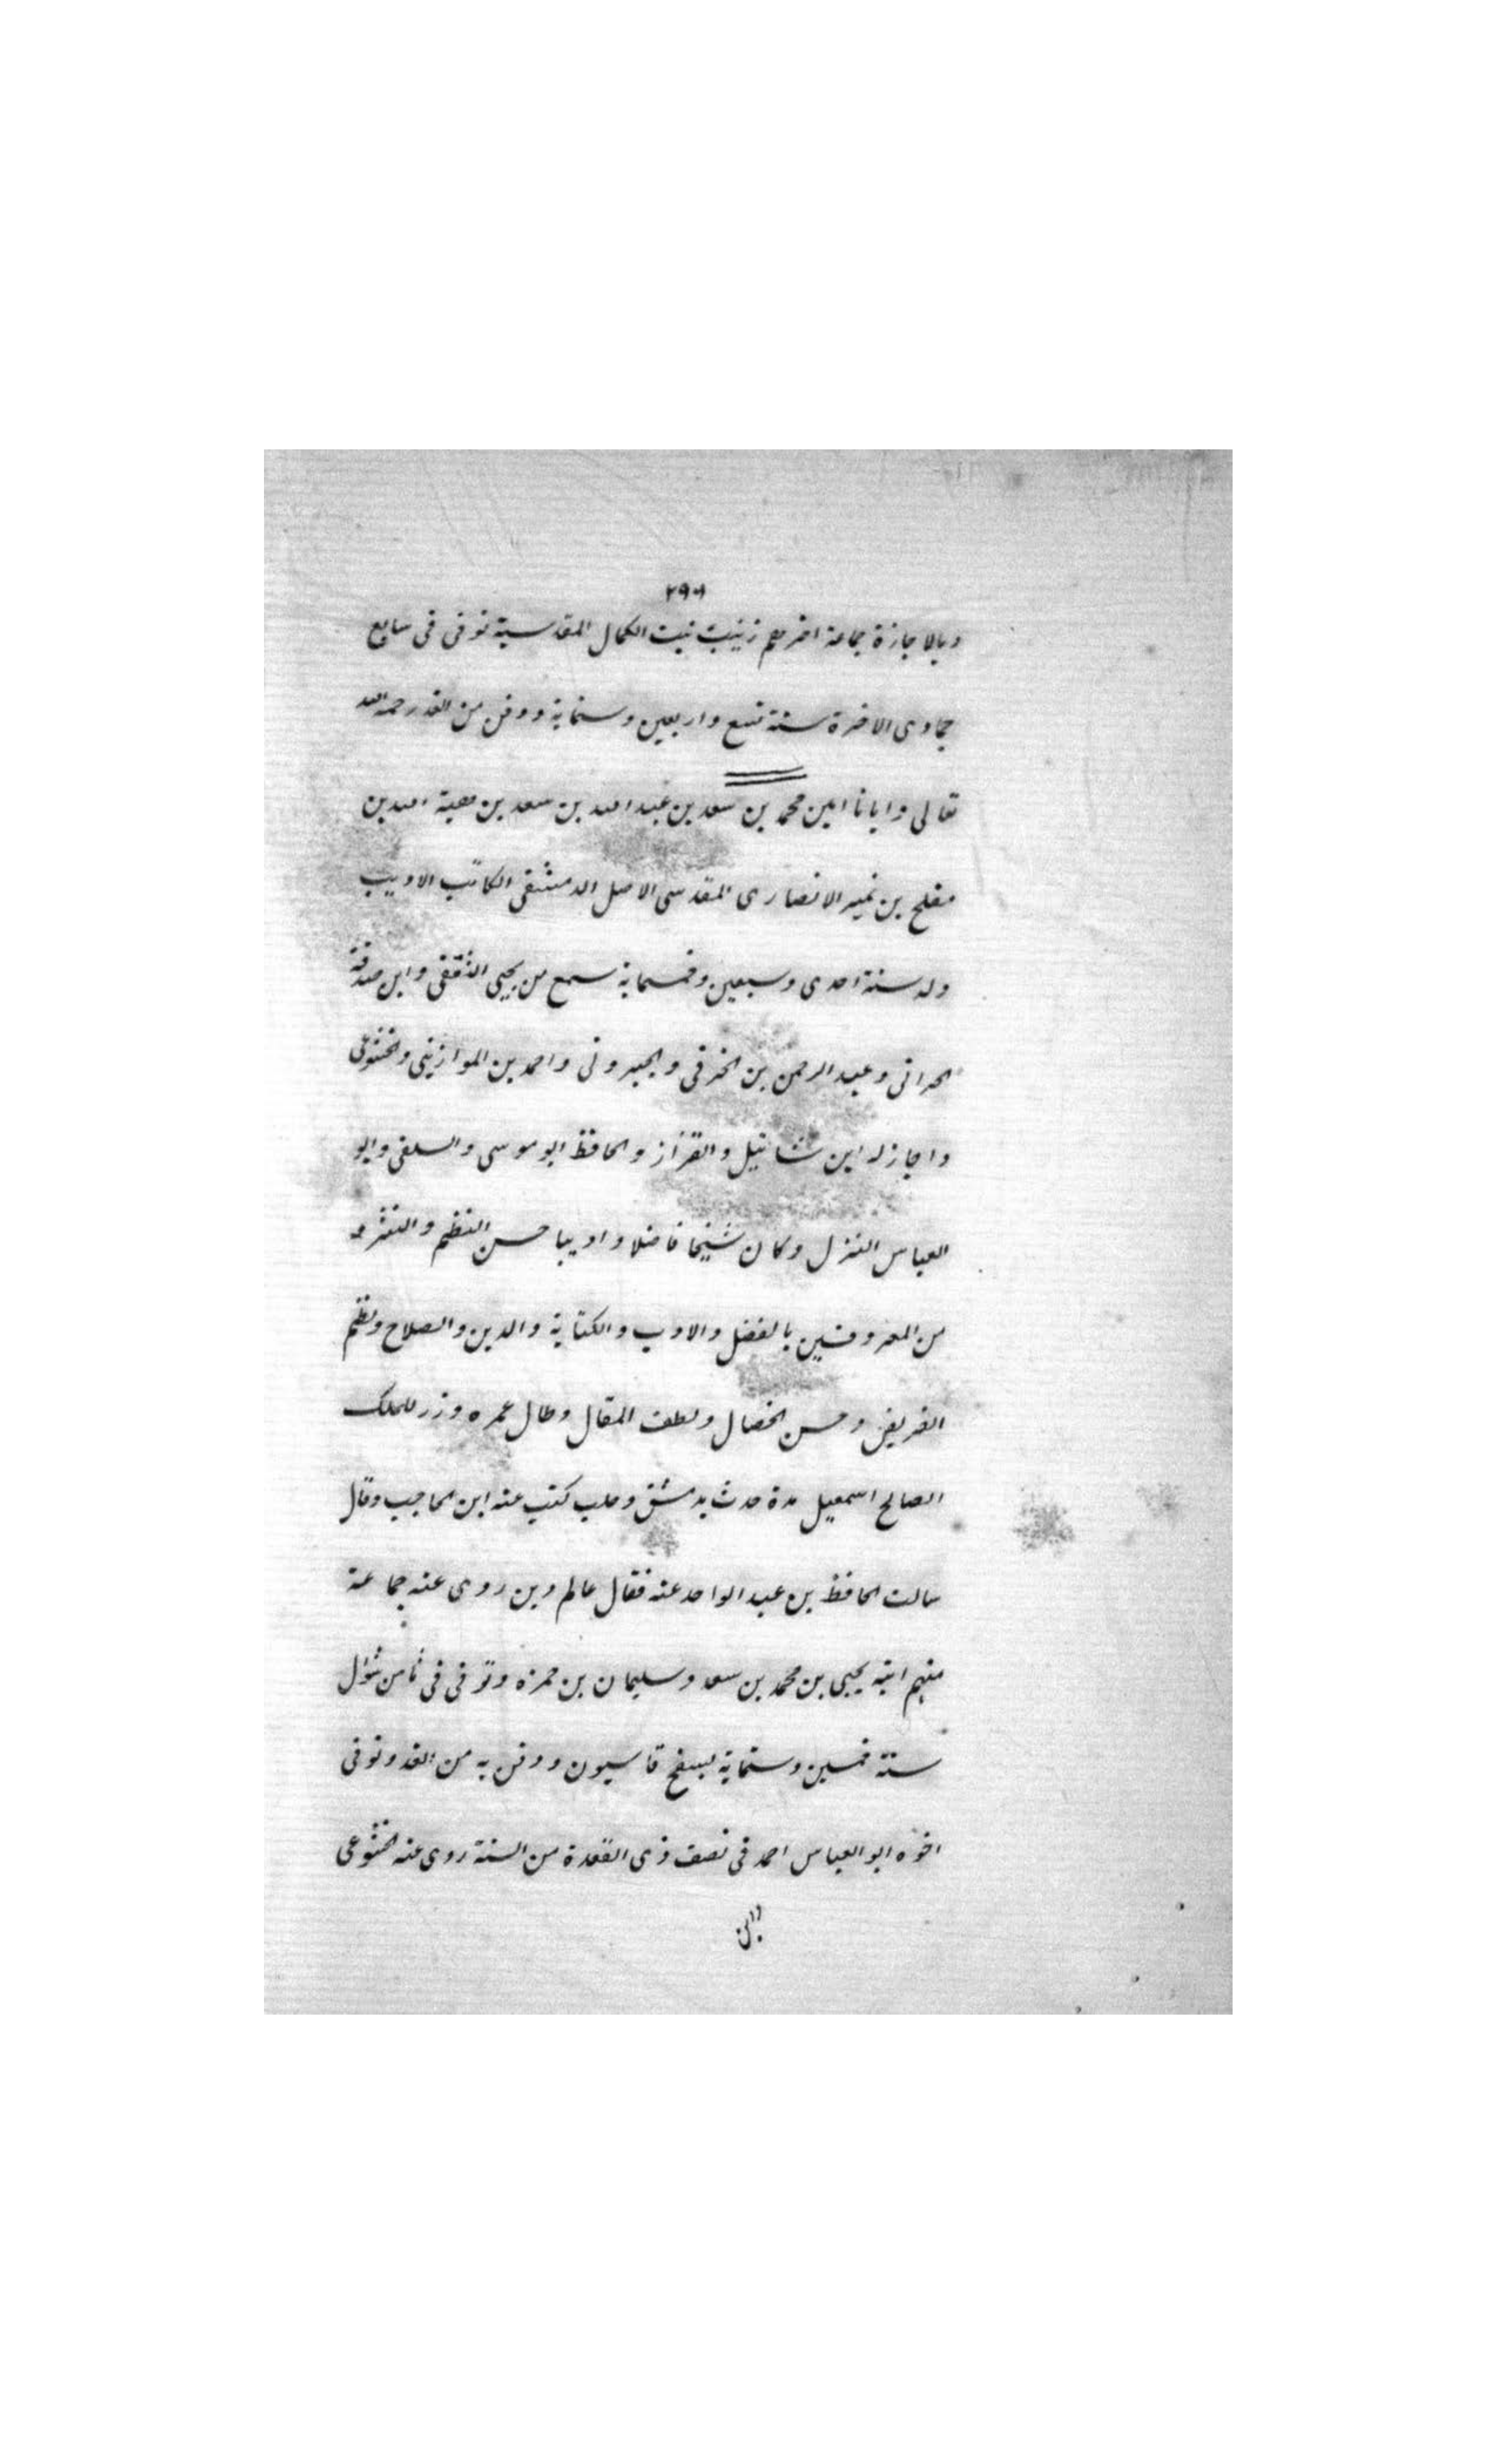 وبالاجازة جماعة اخرهم زينب بنت الكمال المقدسية توفى فى سابع
جمادى الاخرة سنة تسع واربعين وستماية ودفن من الغد رحمه الله
تعالى وايانا امين محمد بن سعد بن عبد الله بن سعد بن هبة الله بن
مفلح بن نمير الانصارى المقدسى الاصل الدمشقى الكاتب الاديب
ولد سنة احدى وسبعين وخمسماية سمع من يحيى الثقفى وابن صدقة
الحرانى وعبد الرحمن بن الخرقى والجيرونى واحمد بن الموازينى والخشوعى
واجاز له ابن شاتيل والقزاز والحافظ ابو موسى والسلفى وابو
العباس الترك وكان شيخا فاضلا واديبا حسن النظم والنثر
من المعروفين بالفضل والادب والكتابة والدين والصلاح ونظم
القريض وحسن الخصال ولطف المقال وطال عمره وزر للملك
الصالح اسمعيل مدة حدث بدمشق وحلب كتب عنه ابن الحاجب وقال
سالت الحافظ بن عبد الواحد عنه فقال عالم دين روى عنه جماعة
منهم ابنه يحيى بن محمد بن سعد وسليمان بن حمزه وتوفى فى ثامن شوال
سنة خمسين وستماية بسفح قاسيون ودفن به من الغد وتوفى
اخوه ابو العباس احمد فى نصف ذى القعدة من السنة روى عنه الخشوعى
وابن